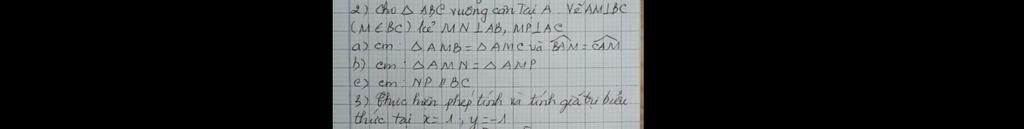 2) Cho △ ABC vuông cân Tại A. Vẽ AM⊥BC
(M∈BC) kẻ MN⊥AB, MP⊥AC
a) cm: △AMB = △AMC và \widehat{BAM} = \widehat{CAM}
b) cm: △AMN = △AMP
c) cm: NP // BC
3) Thực hiện phép tính và tính giá trị biểu
thức tại x=1, y=-1